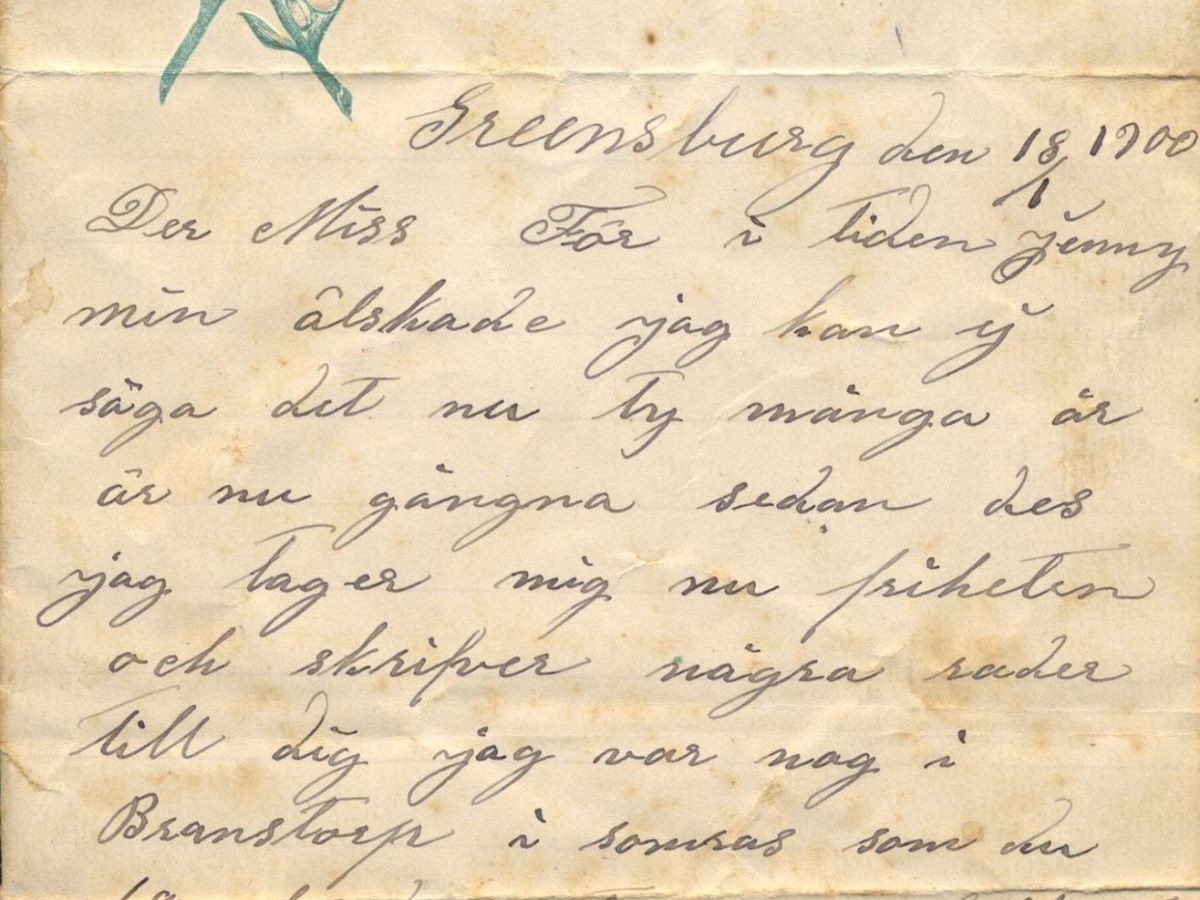 Greensburg den 18/1 1900
Der Miss För i tiden Jenny
min älskade jag kan ij
säga det nu ty många år
är nu gångna sedan des
jag tager mig nu friheten
och skrifver några rader
till dig jag var nog i
Branstorp i somras som du